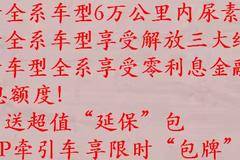 全系车型6万公里内尿素
全系车型享受解放三大
车型全系享受零利息金融
息额度!
送超值“延保”包
P牵引车享限时“包牌”